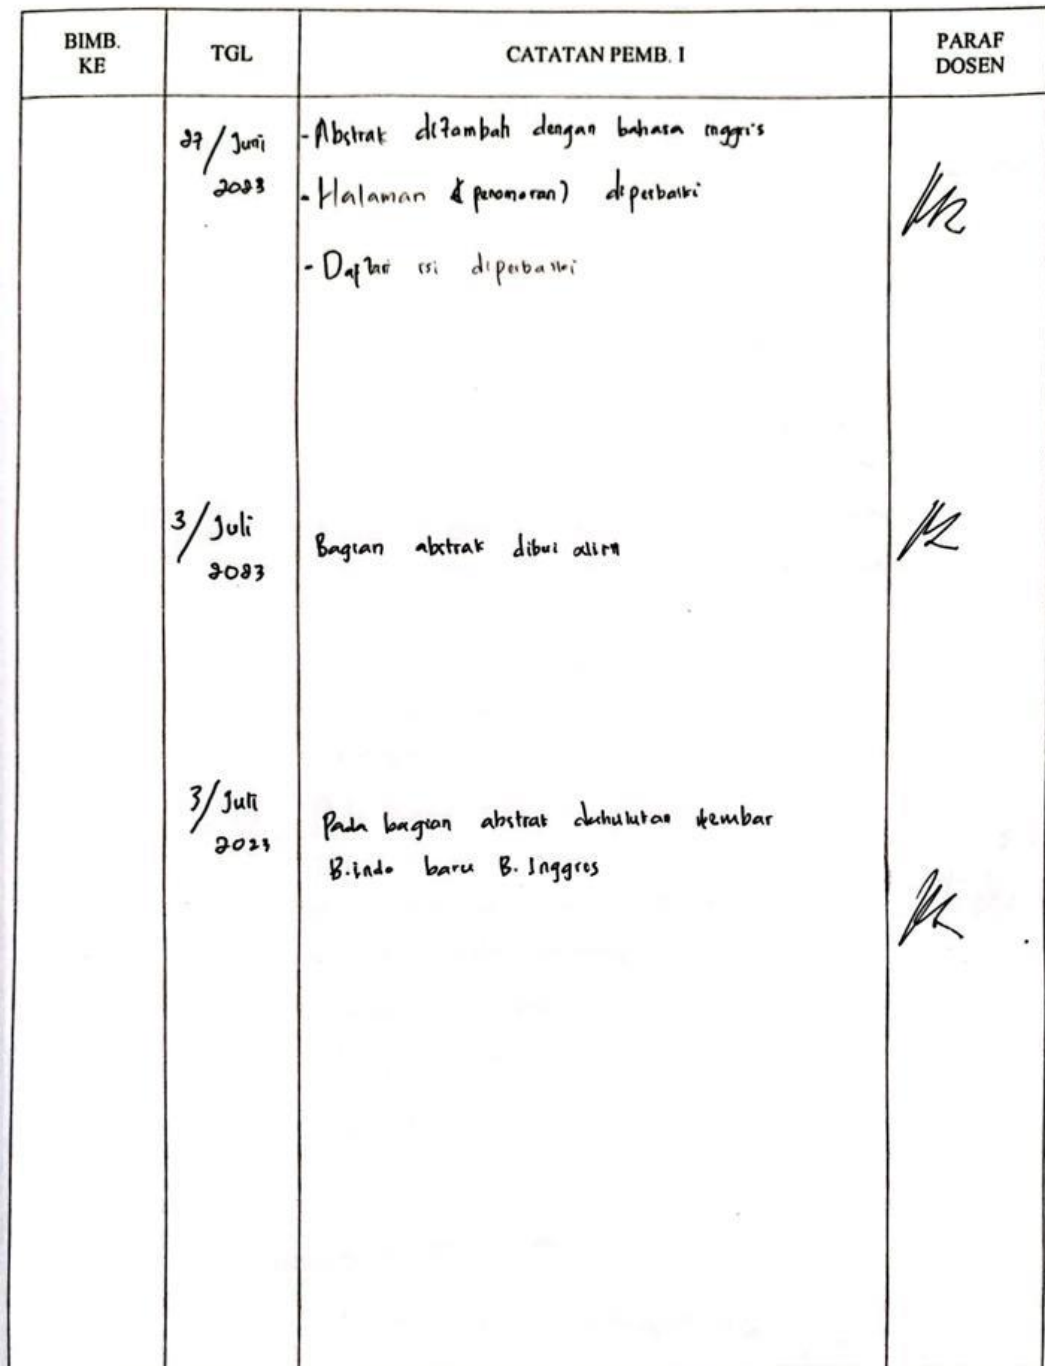 BIMB. KE TGL CATATAN PEMB. I PARAF DOSEN
27/Juni 2023 - Abstrak ditambah dengan bahasa inggris
- Halaman & penomoran) diperbaiki
- Daftar isi diperbaiki
3/Juli 2023 Bagian abstrak dibui
3/Juli 2023 Pada bagian abstrak
B.indo baru B. Inggres